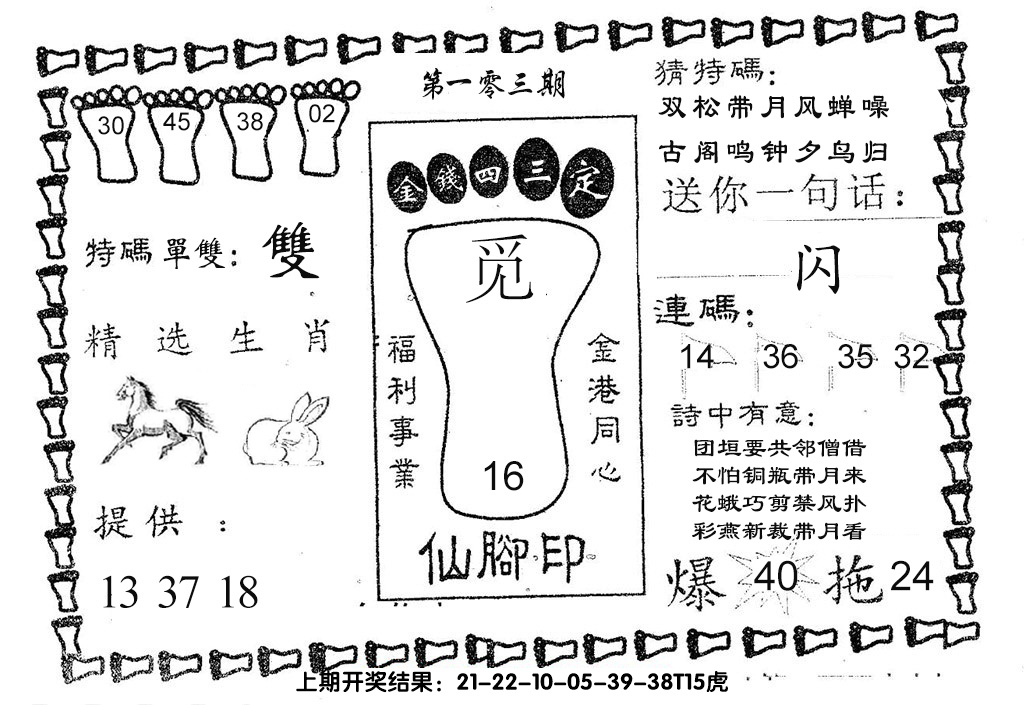 第一零三期
30 45 38 02
特碼單雙：雙
精选生肖
提供：
13 37 18
金錢四三定
觅
福利事業
金港同心
16
仙腳印
猜特碼：
双松带月风蝉噪
古阁鸣钟夕鸟归
送你一句话：
闪
連碼：
14 36 35 32
詩中有意：
团垣要共邻僧借
不怕铜瓶带月来
花蛾巧剪禁风扑
彩燕新裁带月看
爆 40 拖 24
上期开奖结果：21-22-10-05-39-38T15虎